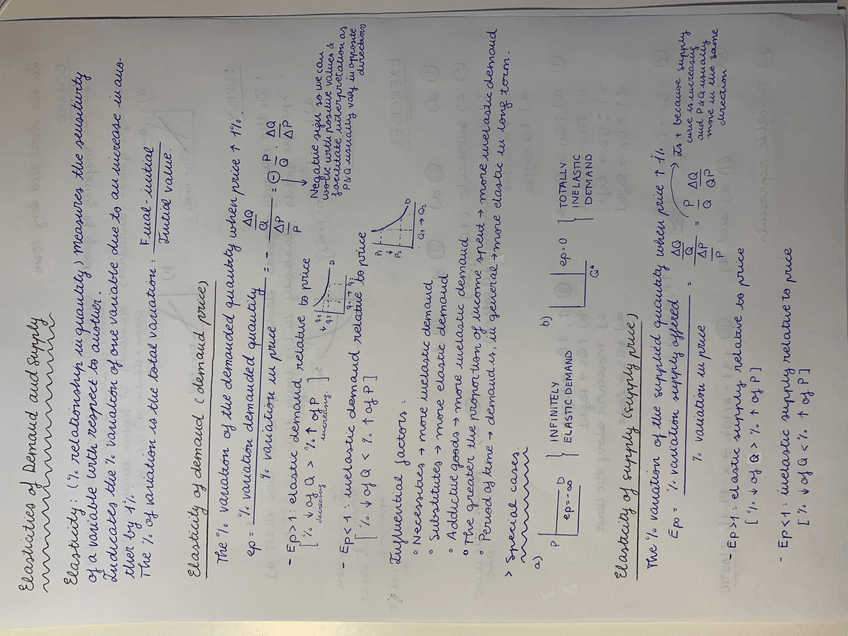 Elasticities of Demand and Supply
Elasticity: (% relationship in quantity) measures the sensitivity
of a variable with respect to another.
Indicates the % variation of one variable due to an increase in ano-
ther by 1%
The % of variation is the total variation: Final-initial / Initial value.
Elasticity of demand (demand price)
The % variation of the demanded quantity when price ↑ 1%.
ep = % variation demanded quantity / % variation in price = - ΔQ/Q / ΔP/P = ⊖ P/Q · ΔQ/ΔP
Negative sign so we can
work with positive values &
facilitate interpretation as
P & Q usually vary in opposite
directions
- Ep > 1: elastic demand relative to price
[% ↓ of Q > % ↑ of P]
decreasing
increasing
- Ep < 1: inelastic demand relative to price
[% ↓ of Q < % ↑ of P]
P₁
P₂
D
Q₁ → Q₂
Influential factors:
• Necessities → more inelastic demand
• Substitutes → more elastic demand
• Addictive goods → more inelastic demand
• The greater the proportion of income spent → more inelastic demand
• Period of time → demand is, in general → more elastic in long term.
> Special cases:
a) P D ep=-∞ } INFINITELY
ELASTIC DEMAND
b) ep=0 Q* } TOTALLY
INELASTIC
DEMAND
Elasticity of supply (supply price)
The % variation of the supplied quantity when price ↑ 1%
Epo = % variation supply offered / % variation in price = ΔQ/Q / ΔP/P = P/Q ΔQ/QP
Is + because supply
curve is increasing
and P & Q usually
move in the same
direction
- Ep > 1: elastic supply relative to price
[% ↓ of Q > % ↑ of P]
- Ep < 1: inelastic supply relative to price
[% ↓ of Q < % ↑ of P]